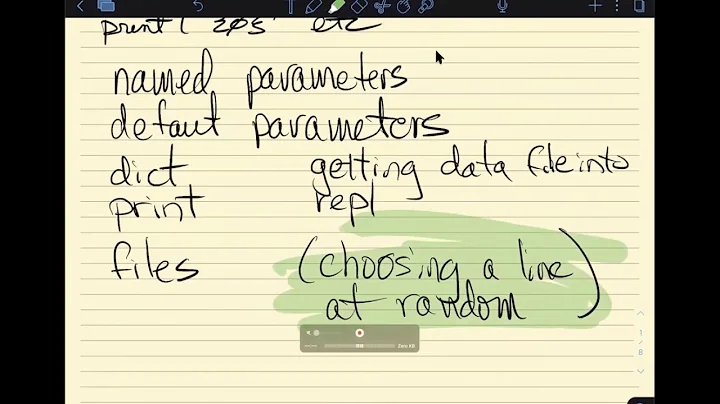 print( etc
named parameters
defaut parameters
dict getting data file into
print repl
files (choosing a line
at random)
1
8
Zero KB